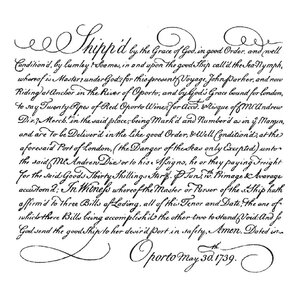 Shipp'd by the Grace of God, in good Order, and well
Condition'd, by Lumley & Soames, in and upon the good Ship call'd the Sea Nymph,
whereof is Master under God, for this present Voyage, John Parker, and now
Riding at Anchor in the River of Oporto, and by God's Grace bound for London,
to say Twenty Pipes of Red Oporto Wine, for Acct. & risque of Mr. Andrew
Die, Merch. in the said place; being Mark'd and Number'd as in ye Margin,
and are to be Deliver'd in the like good Order, & Well Condition'd, at the
aforesaid Port of London, (the Danger of the Seas only Excepted,) unto
the said Mr. Andrew Die, or to his Assigns, he or they paying Freight
for the said Goods Thirty Shillings Sterg. Tun, wth. Primage & Average
accustom'd. In Witness whereof the Master or Purser of the Ship hath
affirm'd to three Bills of Lading, all of this Tenor and Date, the one of
which three Bills being accomplish'd the other two to stand Void. And so
God send the good Ship to her desir'd Port in safety. Amen. Dated in
Oporto May 3d. 1739.